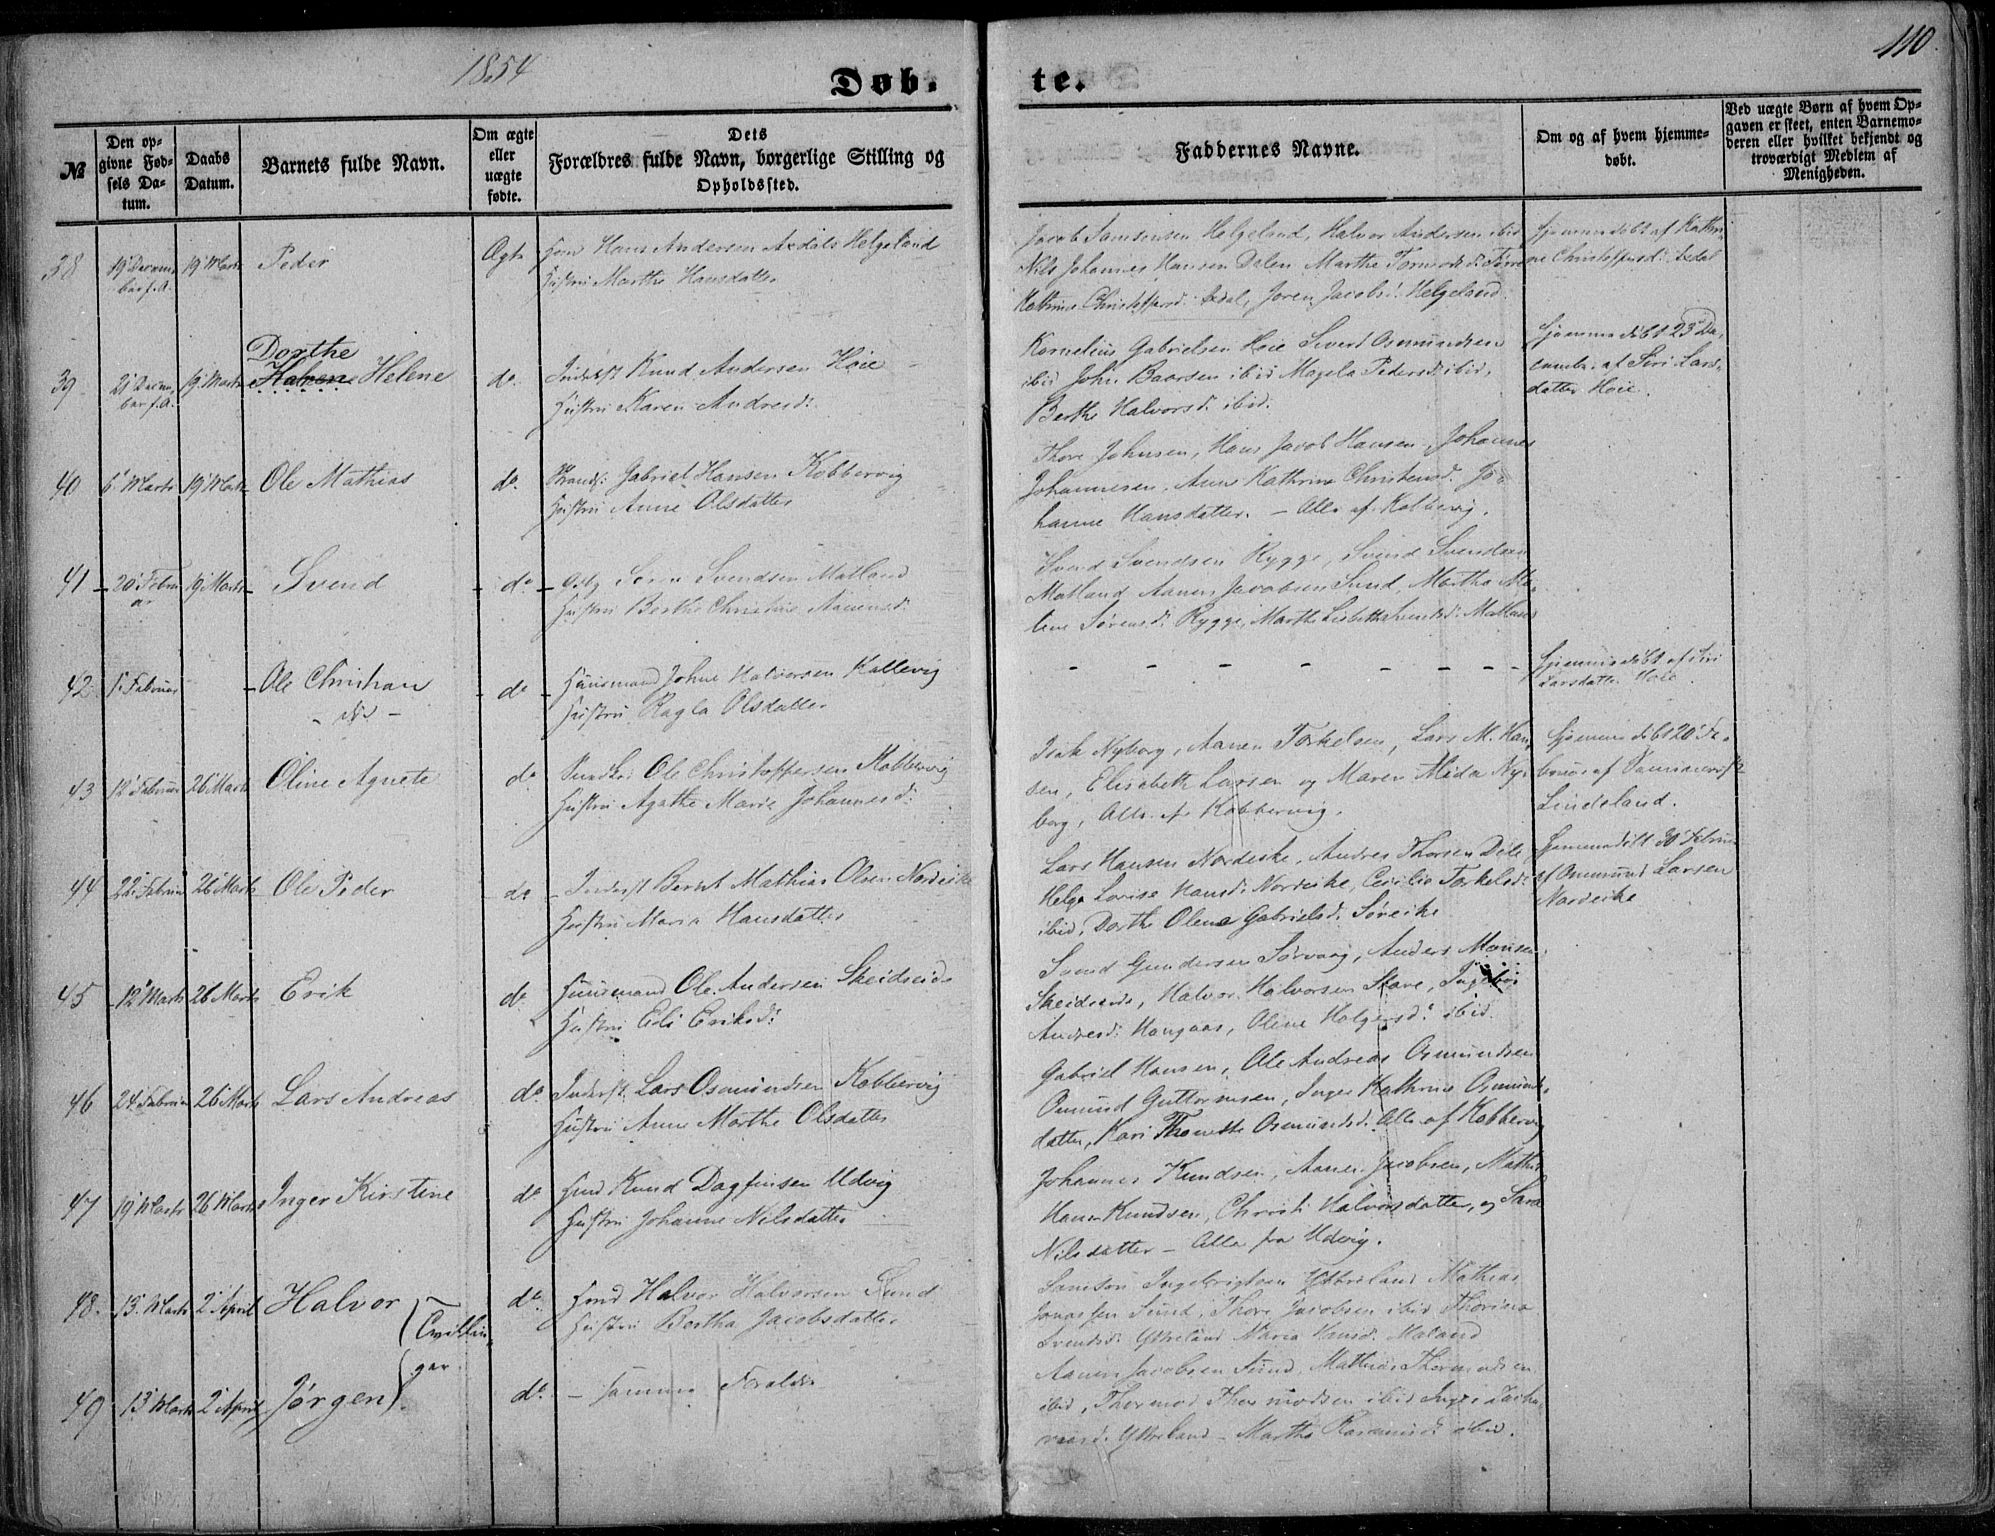 1854
110.
Døb.
te.
№
Den opgivne Fødsels Datum.
Daabs Datum.
Barnets fulde Navn.
Om ægte eller uægte fødte.
Dets Forældres fulde Navn, borgerlige Stilling og Opholdssted.
Faddernes Navne.
Om og af hvem hjemmedøbt.
Ved uægte Børn af hvem Opgaven er skeet, enten Barnemoderen eller hvilket bekjendt og troværdigt Medlem af Menigheden.
38
19 Decem
ber f. A.
19 Marts
Peder
Ægte
Hans Andersen Axdal Helgeland
Hustru Marthe Hansdatter
Jacob Samsonsen Helgeland, Halvor Andersen ibid
Nils Johannes Hansen Dalen Marthe
Kathrine Christoffersd. Axdal, Joren Jacobsd. Helgeland.
Hjemmedøbt af Kathri
ne Christoffersd. Axdal
39
21 Decem
ber f. A.
19 Marts
Dorthe
Karen Helene
do
Inderst Knud Andersen Høie
Hustru Karen Andersd:
Kornelius Gabrielsen Høie Sivert Osmundsen
ibid John Baarsen ibid Magela Pedersd: ibid,
Berthe Halvorsd: ibid.
Hjemmedøbt 23 De
cember af Siri Lars
datter Høie.
40
6 Marts
19 Marts
Ole Mathias
do.
Strands: Gabriel Hansen Kobbervig
Hustru Anne Olsdatter
Thore Johnsen, Hans Jacob Hansen, Johannes
Johannesen, Anne Kathrine Christensd. Jo-
hanne Hansdatter. - Alle af Kobbervig.
41
20 Febru
ar
19 Marts
Svend
do.
Søren Svendsen Matland
Hustru Berthe Christine Aanensd:
Svend Svendsen Rygge, Svend Svendsen
Matland Aanen Jacobsen Sund, Marthe Ma
lene Sørensd: Rygge, Marthe Lisbeth Svendsd: Matland
42
1 Februar
Ole Christian
do
Huusmand Johne Halvorsen Kallevig
Hustru Ragla Olsdatter
- - - - - - - -
Hjemmedøbt af Siri
Larsdatter Høie.
43
12 Februar
26 Marts
Oline Agnete
do
Ole Christoffersen Kobbervig
Hustru Agathe Marie Johannesd:
Isak Nyborg, Aanen Torkelsen, Lars M. Han
sen, Elisebeth Larsen og Maren Alida Ny
borg, Alle af Kobbervig.
Hjemmedøbt 20 Fe
bruar af
Lindeland.
44
22 Februar
26 Marts
Ole Peder
do
Inderst Bernt Mathias Olsen Nordeike
Hustru Maria Hansdatter
Lars Hansen Nordeike, Andres Thorsen Dale
Helge Lovise Hansd: Nordeike, Cecilia Torkelsd:
ibid, Dorthe Olene Gabrielsd. Søreike
Hjemmedøbt 30 Februar
af Osmund Larsen
Nordeike
45
12 Marts
26 Marts
Erik
do
Huusmand Ole Andersen Skeidseid
Hustru Eli Eriksd:
Svend Gundersen Sørvaag, Anders Monsen
Skeidseid, Halvor Halvorsen Stave, Ingebor
Andersd: Haugaas, Olene Holgersd: ibid.
46
24 Februar
26 Marts
Lars Andreas
do
Inderst. Lars Osmundsen Kobbervig
Hustru Anne Marthe Olsdatter
Gabriel Hansen, Ole Andreas Osmundsen
Osmund Guttormsen, Inger Kathrine Osmunds
datter, Kari Thonette Osmundsd. Alle af Kobbervig
47
19 Marts
26 Marts
Inger Kirstine
do
Knud Dagfinsen Udvig
Hustru Johanne Nilsdatter
Johannes Knudsen, Aanen Jacobsen, Mathis
Hansen Knudsen, Christi Halvorsdatter, og Sara
Nilsdatter - Alle fra Udvig.
48.
13. Marts
2 April
Halvor
do.
Halvor Halvorsen Sund
Hustru Bertha Jacobsdatter
Samson Ingebrigtsen Ytreland Mathias
Jonassen Sund, Thore Jacobsen ibid Thorina
Svendsd: Ytreland Maria Hansd: Maland
Tvillin
ger
49
13 Marts
2 April
Jørgen
do.
- samme Forældre
Aanen Jacobsen Sund, Mathias Thormodsen
ibid, Thormod Thormodsen ibid Inger Zacha
riasd: Ytreland - Marthe Rasmusd: ibid.